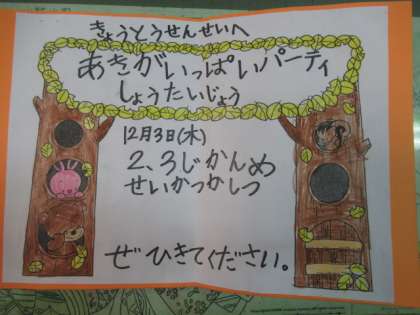 きょうとうせんせいへ
あきがいっぱいパーティ
しょうたいじょう
12月3日(木)
2、3じかんめ
せいかつかしつ
ぜひきてください。